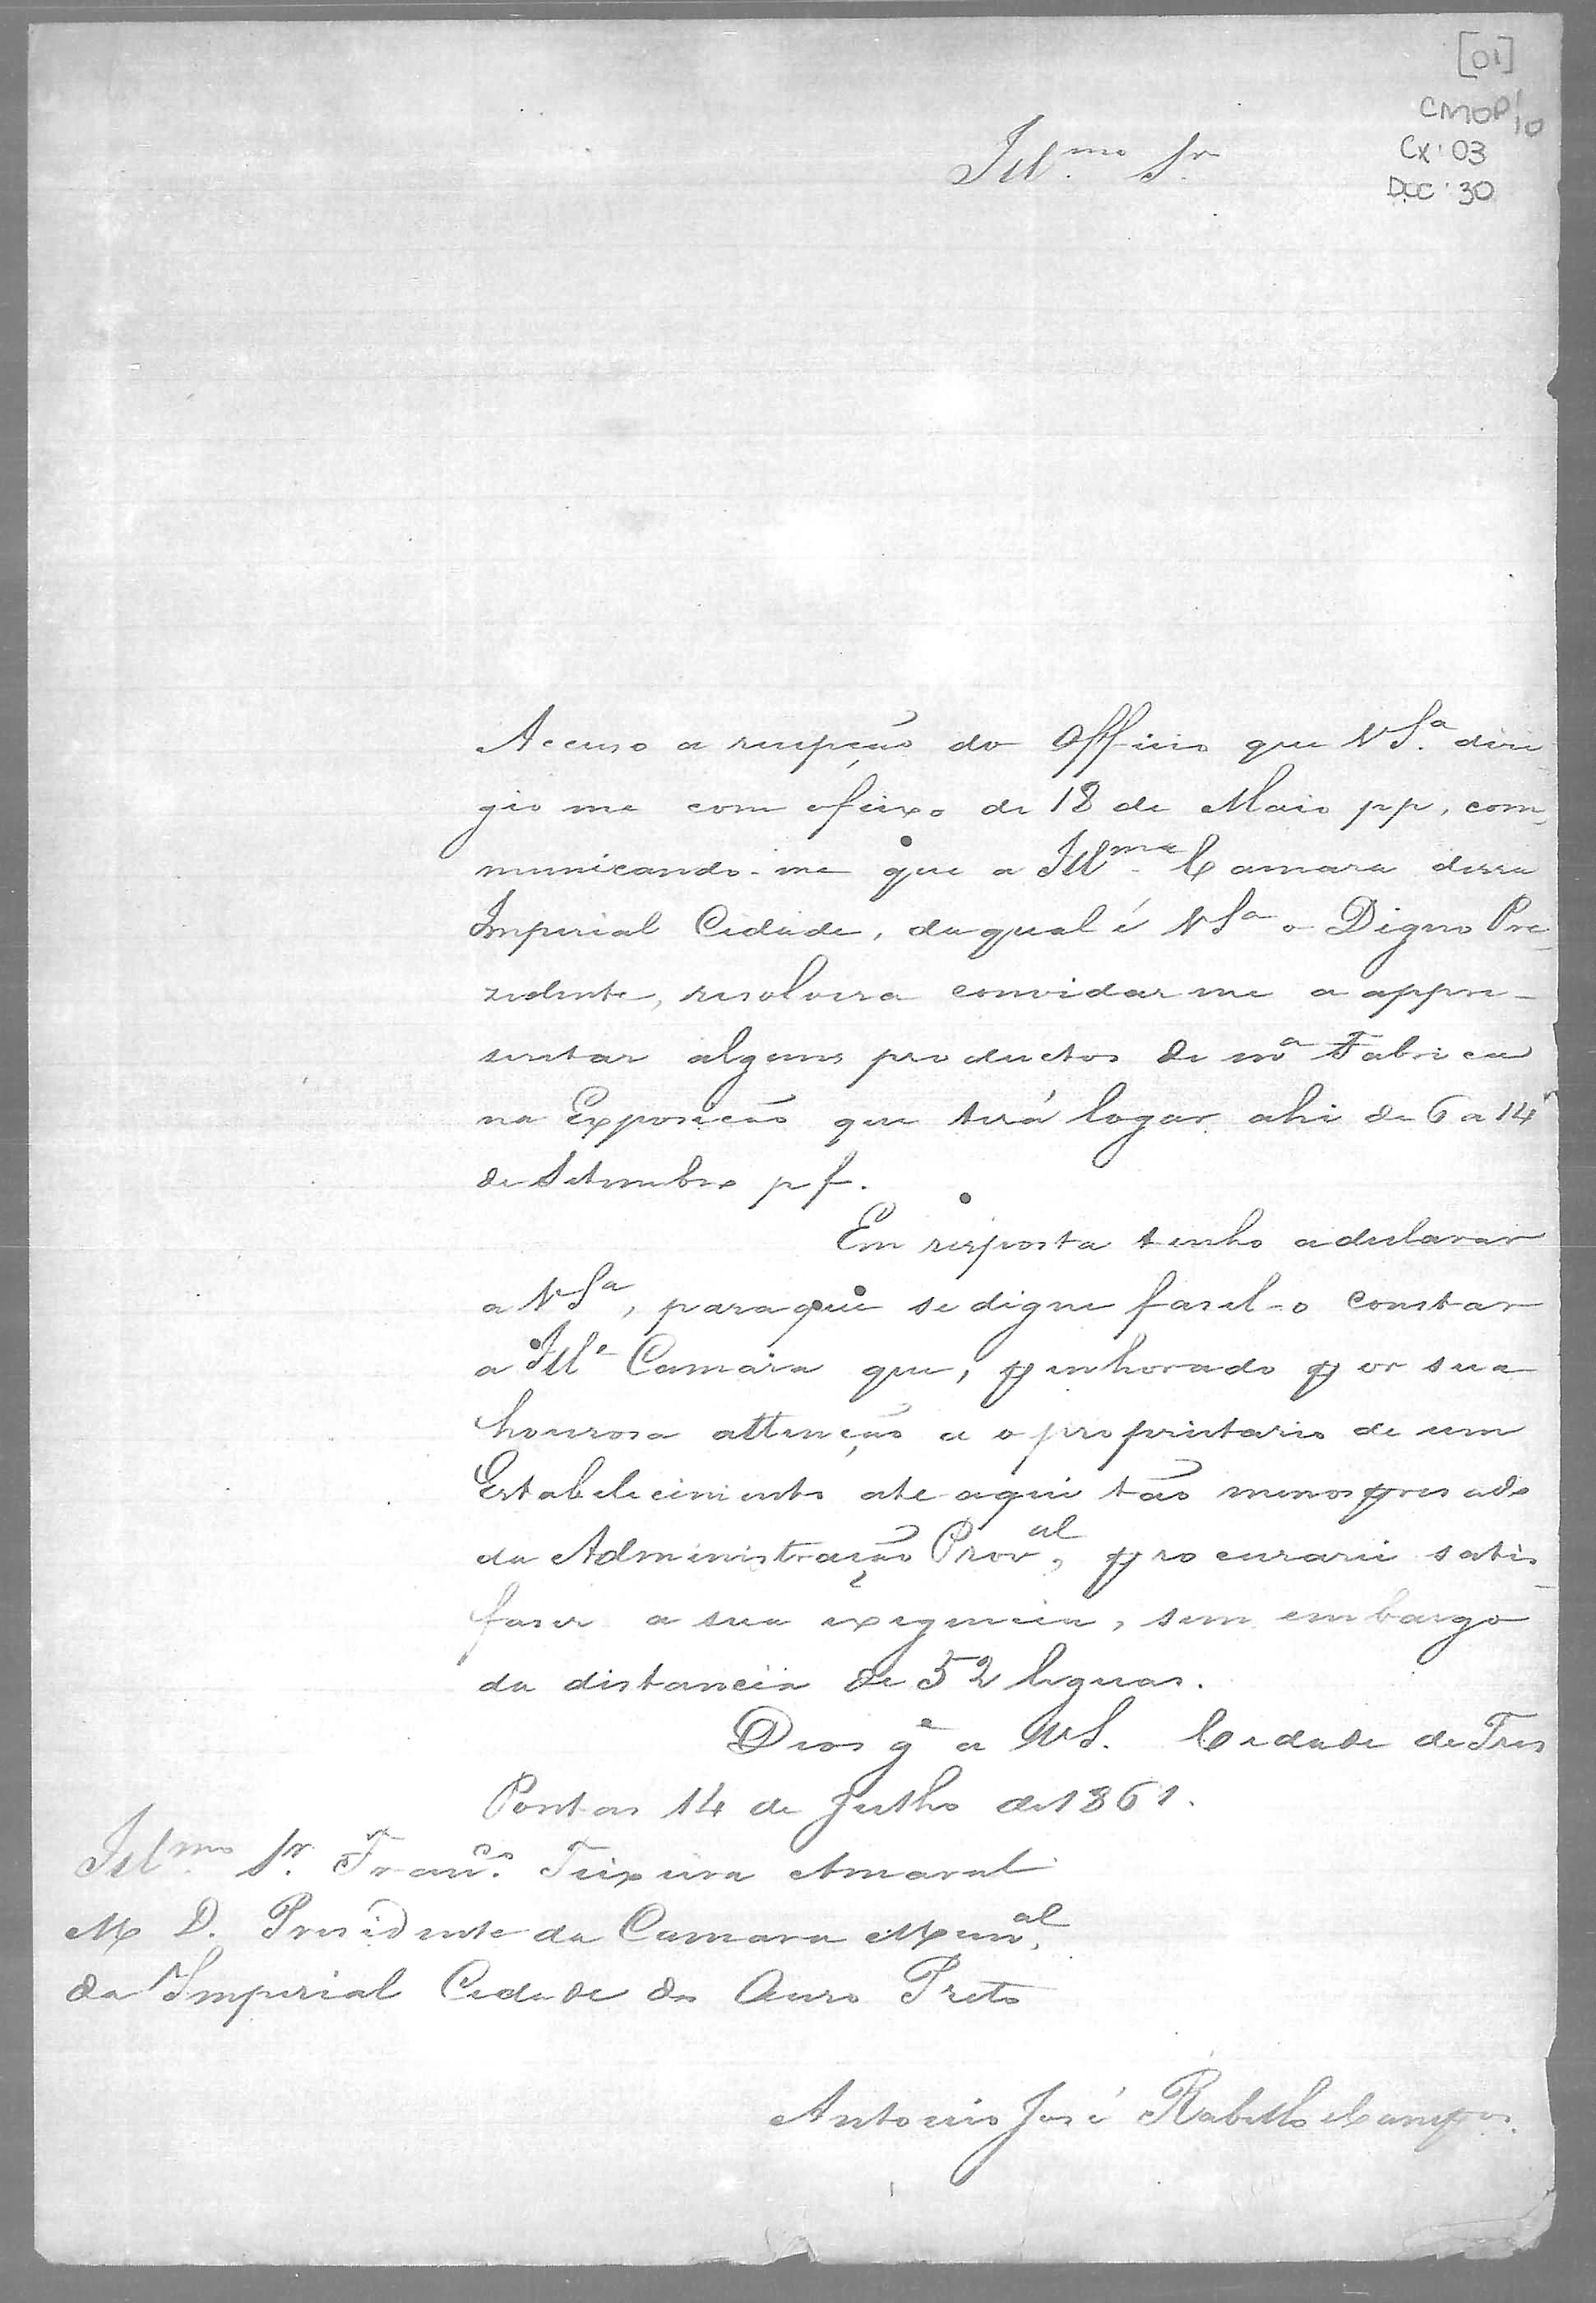 [01]
CMOP 10
Cx: 03
Doc: 30
Ill.mo Sr.
Accuso a recepção do Officio que VS.a diri-
gio me com ofeixo de 18 de Maio pp, com-
municando-me que a Ill.ma Camara dessa
Imperial Cidade, daqual é VSa o Digno Pre-
zidente, resolvera convidar me a appre-
sentar alguns productos de ma Fabrica
na Exposição que terá logar ahi de 6 a 14
de Setembro pf.
Em resposta tenho adeclarar
a VSa, paraque sedigne fasel-o constar
a Ille Camara que, penhorado por sua
honrosa attenção a o proprietario de um
Estabelecimento ate aqui tão menospresado
da Administração Proval, procurarei satis-
faser a sua exegencia, sem embargo
da distancia de 52 leguas.
Deos ge a VS. Cidade de Tres
Pontas 14 de Julho de 1861.
Ill.mo Sr. Franco. Teixeira Amaral
M D. Presidente da Camara Munal.
da Imperial Cidade do Ouro Preto
Antonio José Rabello e Campos.